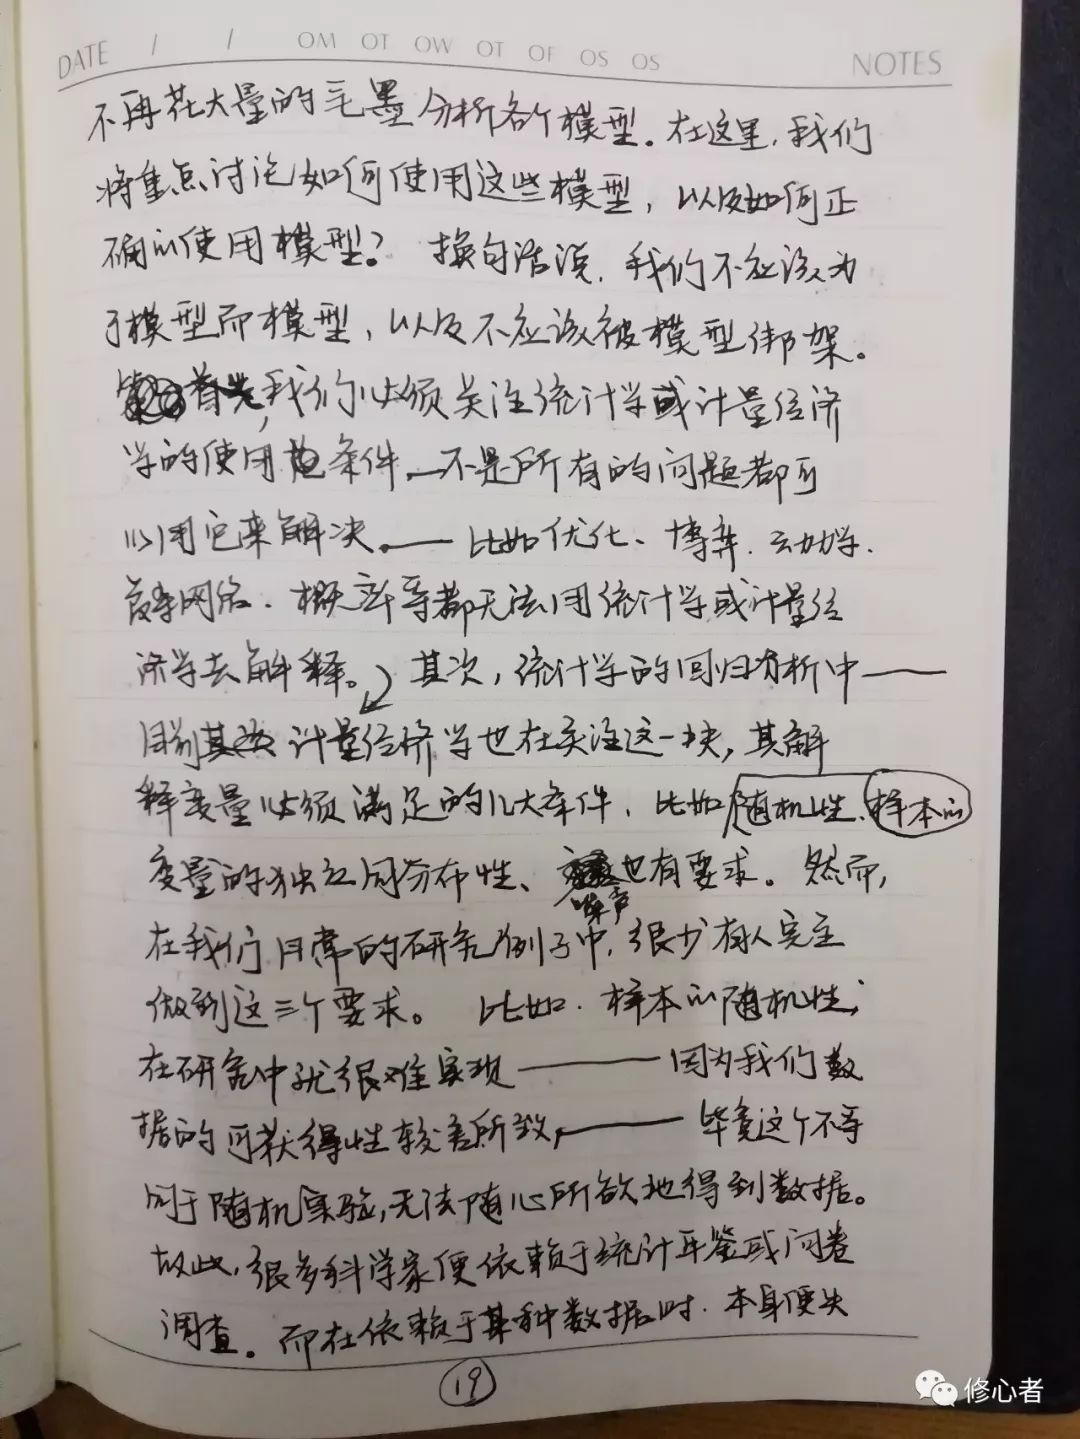 DATE / / OM OT OW OT OF OS OS NOTES
不再花大量的毛墨分析各个模型。在这里,我们
将重点讨论如何使用这些模型,以及如何正
确的使用模型?换句话说,我们不应该为
了模型而模型,以及不应该被模型绑架。
首先,我们必须关注统计学或计量经济
学的使用条件。不是所有的问题都可
以用它来解决。——比如优化、博弈、动力学、
复杂网络、概率等都无法用统计学或计量经
济学去解释。其次,统计学的回归分析中——
目前计量经济学也在关注这一块,其解
释变量必须满足的几大条件,比如随机性、样本的
变量的独立同分布性、噪声也有要求。然而,
在我们日常的研究例子中,很少有人完全
做到这三个要求。比如,样本的随机性,
在研究中就很难实现——因为我们数
据的可获得性较差所致,——毕竟这个不等
同于随机实验,无法随心所欲地得到数据。
故此,很多科学家便依赖于统计年鉴或问卷
调查。而在依赖于某种数据时,本身便失
19
修心者